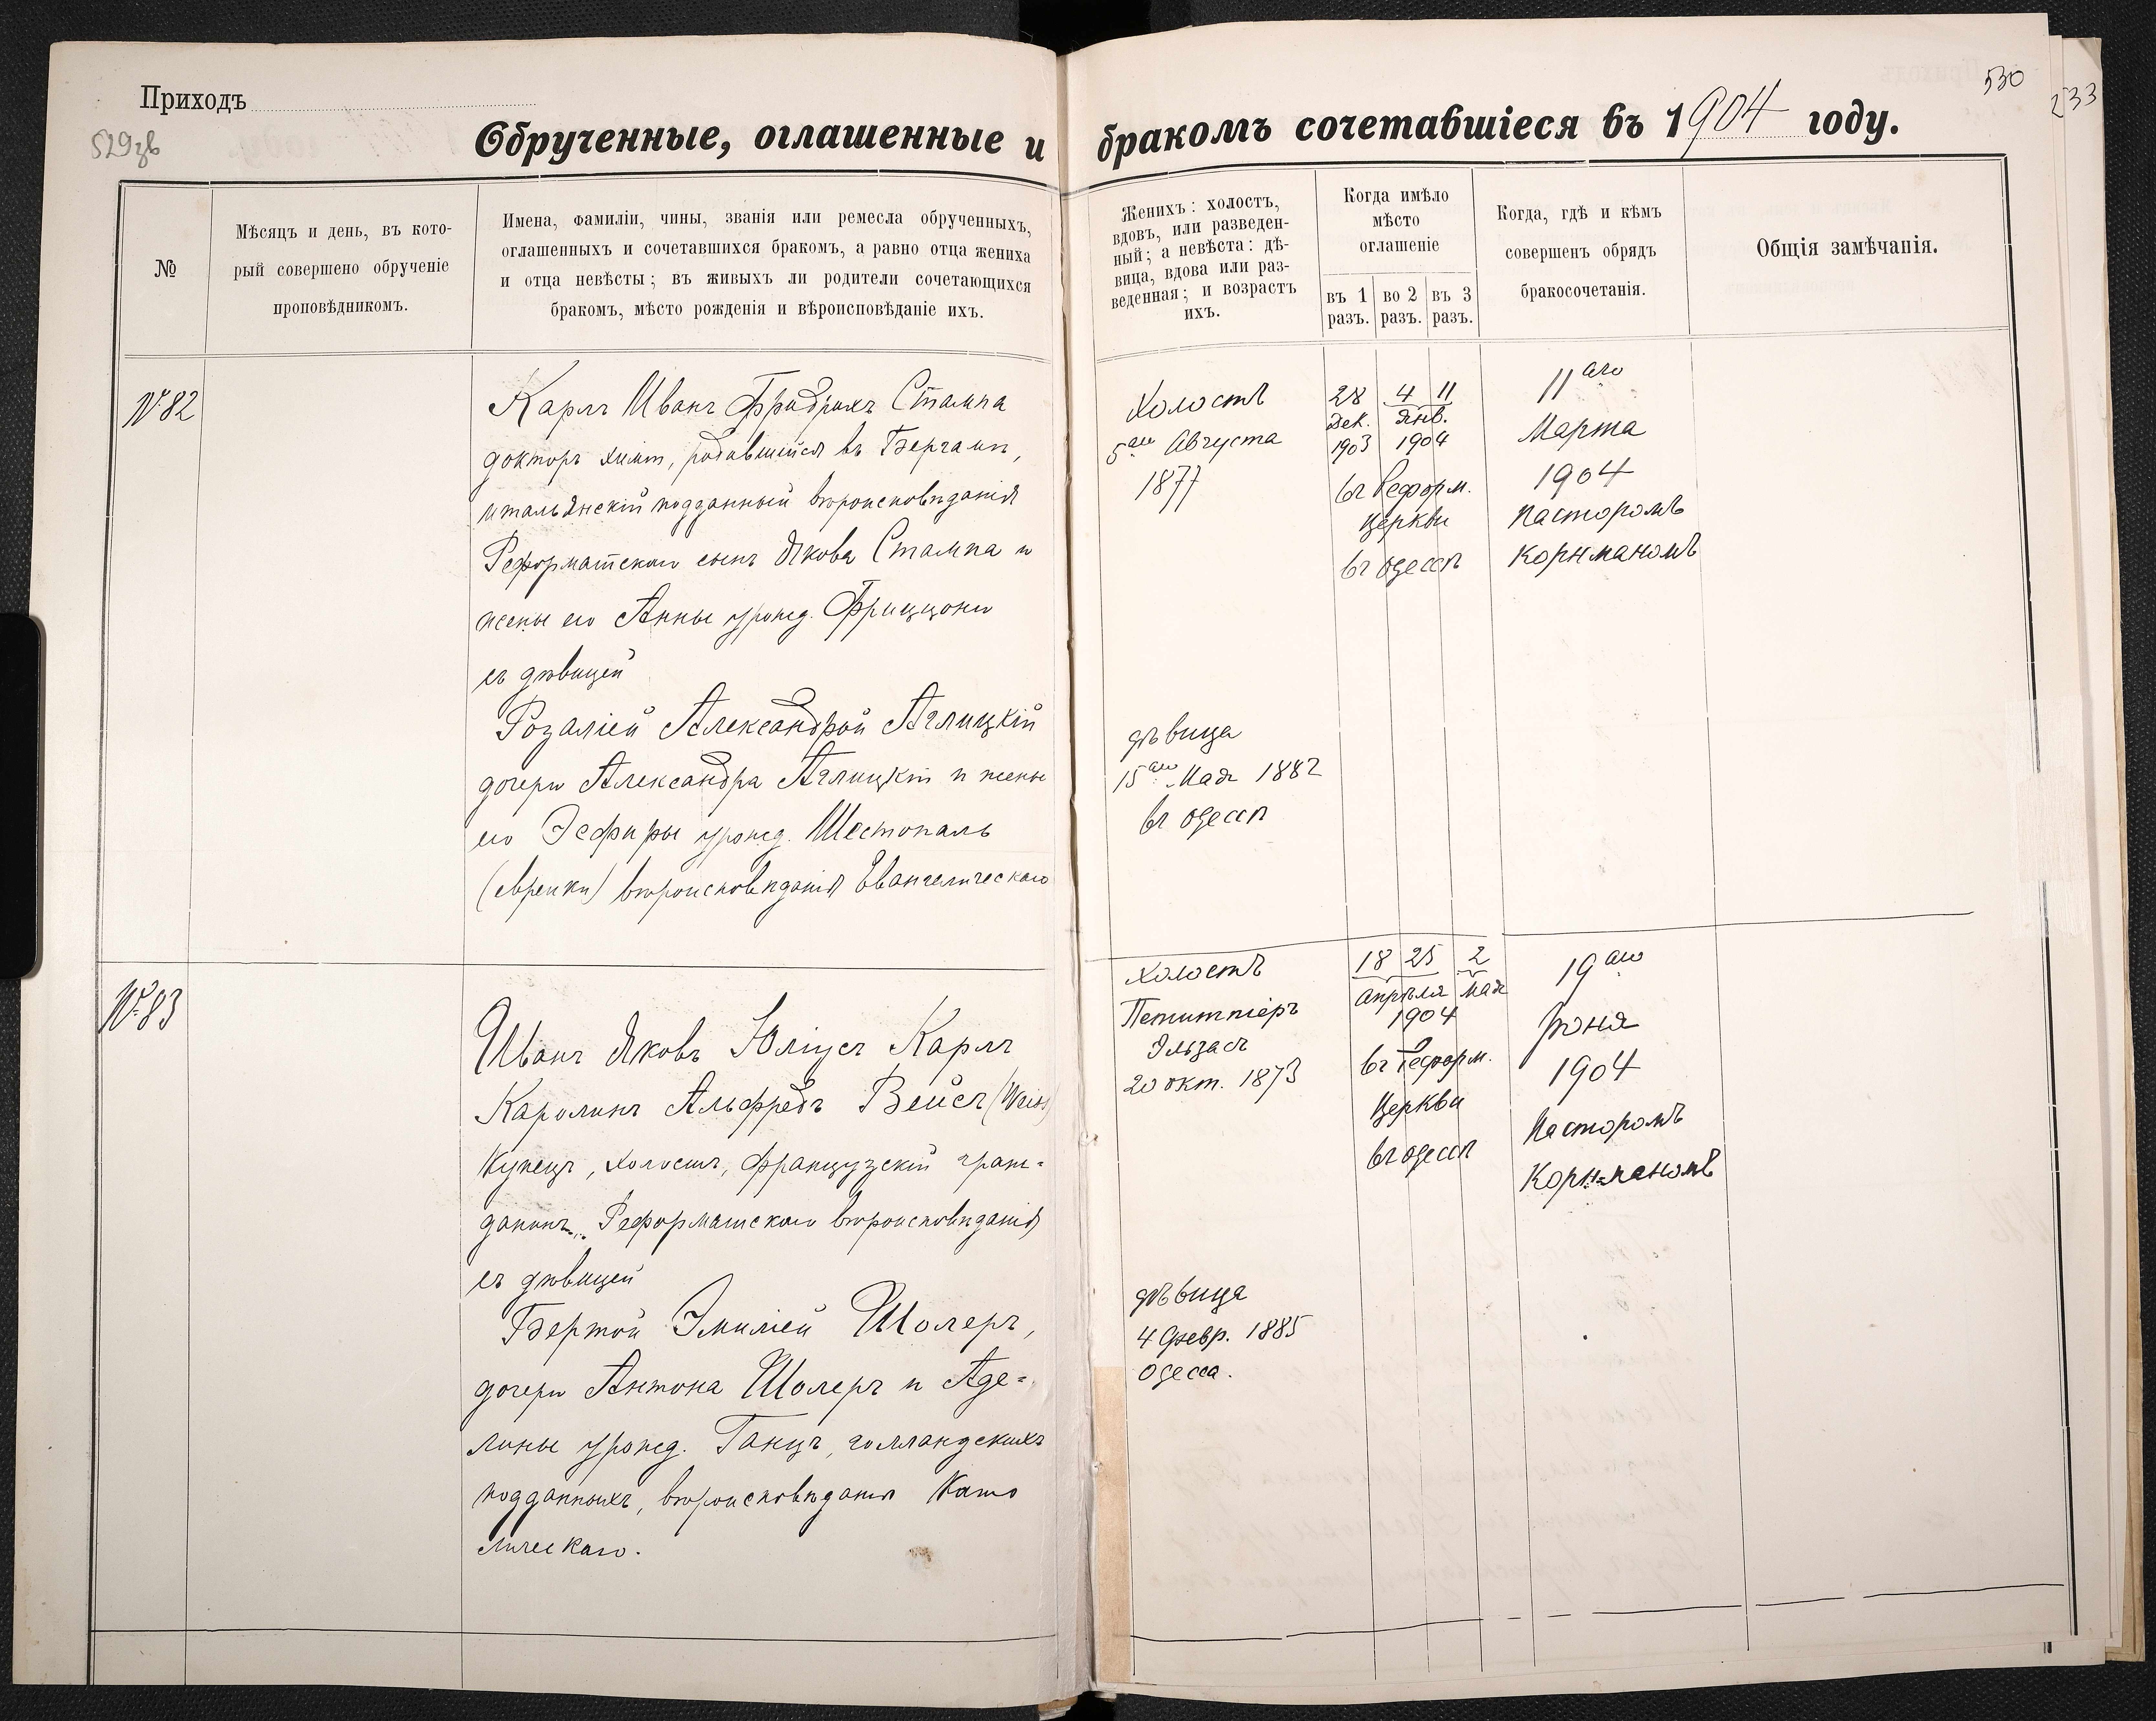 Приходъ
529зв
530
233
Обрученные, оглашенные и бракомъ сочетавшіеся въ 1904 году.
№
Мѣсяцъ и день, въ кото-
рый совершено обрученіе
проповѣдникомъ.
Имена, фамиліи, чины, званія или ремесла обрученныхъ,
оглашенныхъ и сочетавшихся бракомъ, а равно отца жениха
и отца невѣсты; въ живыхъ ли родители сочетающихся
бракомъ, мѣсто рожденія и вѣроисповѣданіе ихъ.
Женихъ: холостъ,
вдовъ, или разведен-
ный; а невѣста: дѣ-
вица, вдова или раз-
веденная; и возрастъ
ихъ.
Когда имѣло
мѣсто
оглашеніе
въ 1 разъ.
во 2 разъ.
въ 3 разъ.
Когда, гдѣ и кѣмъ
совершенъ обрядъ
бракосочетанія.
Общія замѣчанія.
№ 82
Карлъ Иванъ Фридрихъ Стампа
докторъ химіи, родившійся въ Бергамѣ,
итальянскій подданный вѣроисповѣданія
Реформатскаго сынъ Якова Стампа и
жены его Анны урожд. Фриццони
съ дѣвицей
Розаліей Александрой Аглицкій
дочери Александра Аглицкій и жены
его Эсфиры урожд. Шестопаль
(еврейки) вѣроисповѣданія Евангелическаго
Холостъ
5аго Августа
1877
дѣвица
15аго Мая 1882
въ Одессѣ
28 4 11
Дек. Янв.
1903 1904
въ Реформ.
Церкви
въ Одессѣ
11аго
Марта
1904
Пасторомъ
Корнманомъ
№ 83
Иванъ Яковъ Юліусъ Карлъ
Каролинъ Альфредъ Вейсъ (Weiss)
Купецъ, холостъ, французскій граж-
данинъ, Реформатскаго вѣроисповѣданія
съ дѣвицей
Бертой Эмиліей Шолеръ,
дочери Антона Шолеръ и Аде-
лины урожд. Ганцъ, голландскихъ
подданныхъ, вѣроисповѣданія Като
лическаго.
Холостъ
Петитпіеръ
Эльзасъ
20 окт. 1873
дѣвица
4 Февр. 1885
Одесса.
18 25 2
Апрѣля Мая
1904
въ Реформ.
Церкви
въ Одессѣ
19аго
Іюня
1904
Пасторомъ
Корнманомъ